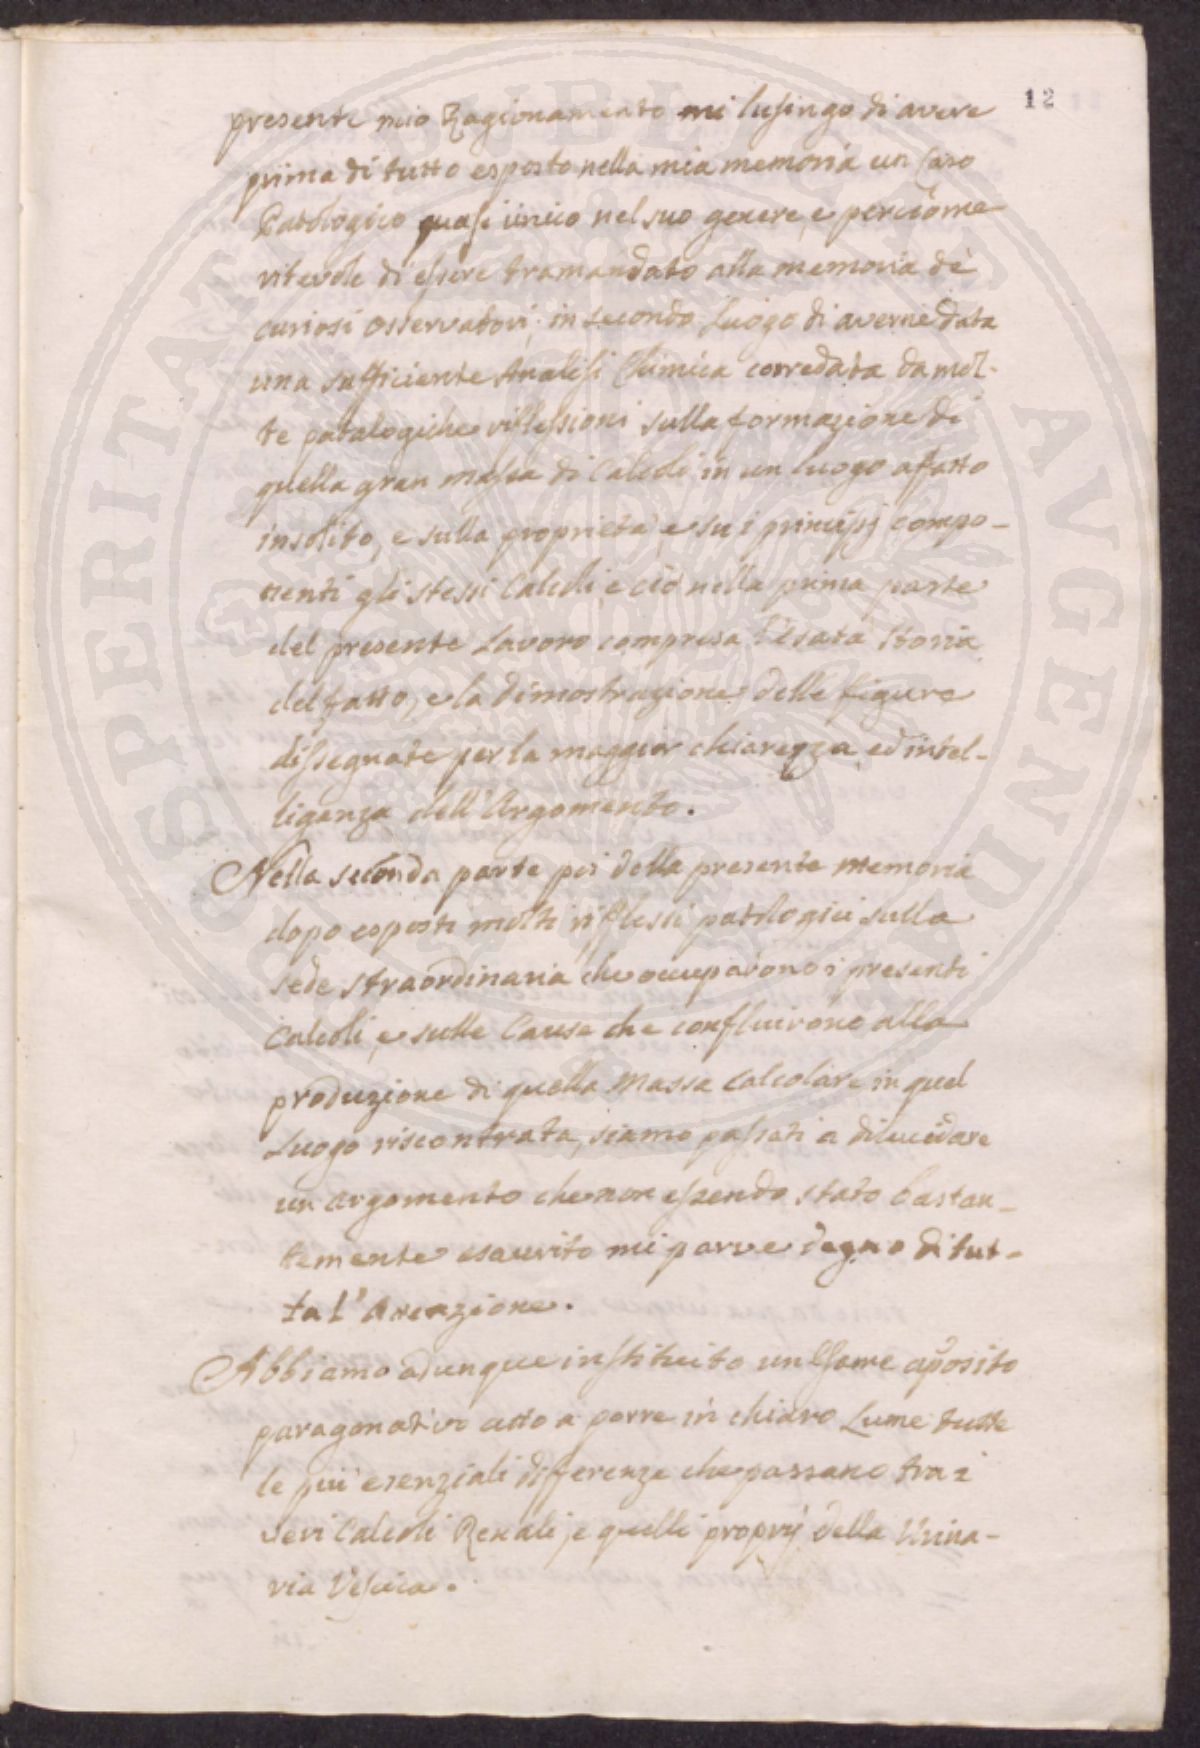 12
presente mio Ragionamento mi lusingo di avere
prima di tutto esposto nella mia memoria un Caso
Patologico quasi unico nel suo genere, e perciò me
ritevole di essere tramandato alla memoria de'
curiosi osservatori; in secondo Luogo di averne data
una sufficiente Analisi Chimica corredata da mol-
te patalogiche riflessioni sulla formazione di
quella gran massa di Calcoli in un luogo affatto
insolito, e sulla proprietà, e su i principj compo-
nenti gli stessi Calcoli, e ciò nella prima parte
del presente Lavoro compresa l'esata Storia
del fatto, e la dimostrazione delle figure
dissegnate per la maggior chiarezza, ed intel-
liganza dell'Argomento.
Nella seconda parte poi della presente memoria
dopo esposti molti riflessi patologici sulla
sede straordinaria che occupavono i presenti
Calcoli, e sulle Cause che confluirono alla
produzione di quella Massa Calcolare in quel
Luogo riscontrata, siamo passati a dilucidare
un argomento che non essendo stato bastan-
temente esaurito mi parve degno di tut-
ta l'Attenzione.
Abbiamo adunque instituito un Esame aposito
paragonativo atto a porre in chiaro Lume tutte
le più esenziali differenze che passano tra i
veri Calcoli Renali, e quelli proprij della Urina-
ria Vescica.
SPERITATI PVBLICAE AVGENDAE